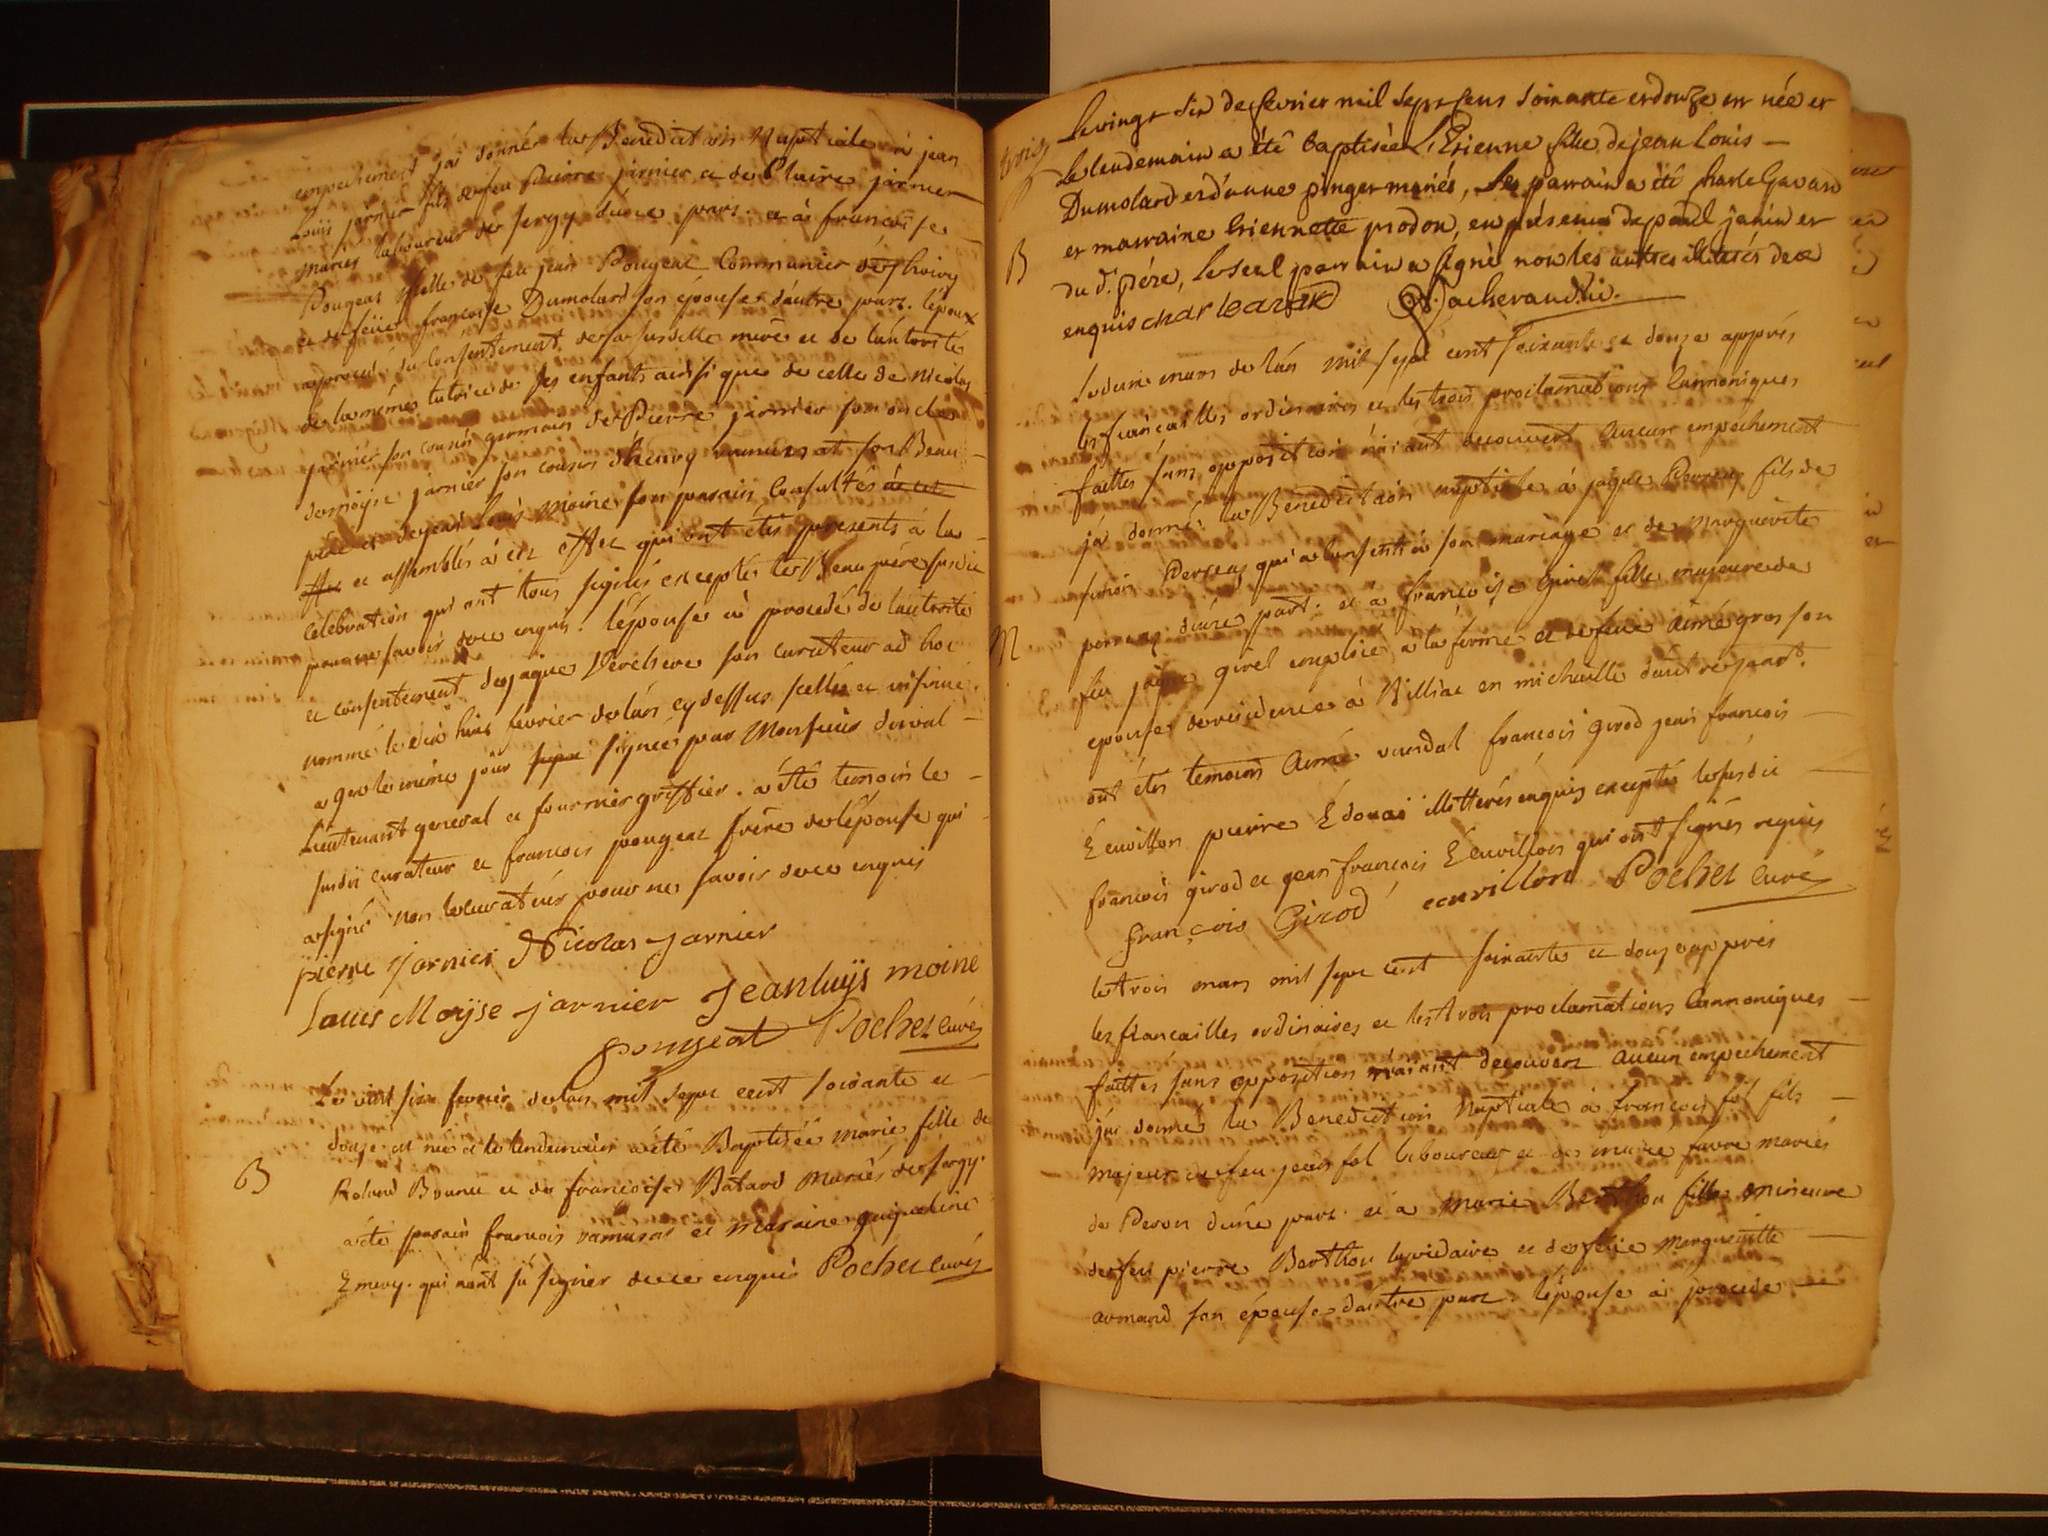 empechement j'ai donné la Benediction Nuptiale à jean
Louis jarnier fils de feu Pierre jarnier et de Claire jarnier
mariés laboureur de sergy d'une part. et à francoise
Pougeat fille de feu jean Pougeat Communier de
et de feüe francoise Dumolard son épouse d'autre part. l'époux
du consentement de sa susditte mere et de l'autorité
de la même tutrice de ses enfants ainsi que de celle de Nicolas
jarnier son cousin germain de Pierre jarnier son oncle
de moÿse jarnier son cousin d'henry ramuzat son Beau
pére et de jean Louis moine son parain Consultés
et assemblés à cet effet qui ont étés presents à la
célébration qui ont tous signés exceptés le Beau pére susdit
pour ne savoir de ce enquis. l'épouse à procedé de l'autorité
et consentement de jaque son curateur ad hoc
nommé le dix huit fevrier de l'an cy dessus scellée et
a gex le même jour signée par Monsieur dorval
Lieutenant general et fournier greffier. à été temoin le
susdit curateur et francois pougeat frére de l'épouse qui
a signé non le curateur pour ne savoir de ce enquis
pierre Jarnier Nicolas Jarnier
Louis Moÿse jarnier Jean luÿs moine
pougeat Pochet curé
Le vint six fevrier de l'an mil sept cent soixante et
douze est née et le lendemain a été Baptisée marie fille de
B
Roland Brunet et de francoise Batard Mariés de sergy.
a été parain francois ramusat et maraine
Emery. qui n'ont sú signer de ce enquis Pochet curé
Le vingt six de fevrier mil sept cens soixante et douze est née et
le lendemain a été baptisée L'Etienne fille de jean Louis
Dumolard et d'anne pinger mariés, Le parrain a été charle Gavard
B
et marraine Etiennette prodon, en présence de paul janin et
du d. pére, le seul parrain a signé non les autres illiterés de ce
enquis char le
Le deux mars de l'an mil sept cent soixante et douze apprés
les fiançailles ordinaires et les trois proclamations Cannoniques
faittes sans opposition n'aiant decouvert aucun empêchement
j'ai donné la Benediction nuptiale à jaque Perreaz fils de
Perreaz qui a consenti à son mariage et de Marguerite
M
perreaz d'une part. et à francoise Girel fille majeure de
feu jaque girel emploié a la ferme et de feüe Aimé gros son
epouse de residence à Billiat en michaille d'autre part.
ont étés temoins Aimé vuardal francois girod jean francois
Ecuvillon pierre Edouai illitterés enquis exceptés le susdit
francois girod et jean francois Ecuvillon qui ont signés requis
françois Girod ecuvillon Pochet curé
le trois mars mil sept cent soixante et douze apprés
les fiancailles ordinaires et les trois proclamations Cannoniques
faittes sans opposition n'aiant decouvert aucun empechement
j'ai donné la Benediction Nuptiale à francois fol fils
majeur de feu jean fol laboureur et de marie favre mariés
de Peron d'une part. et à marie Berthou fille mineure
de feu pierre Berthou lapidaire et de feüe Margueritte
armand son épouse d'autre part. l'épouse à procede